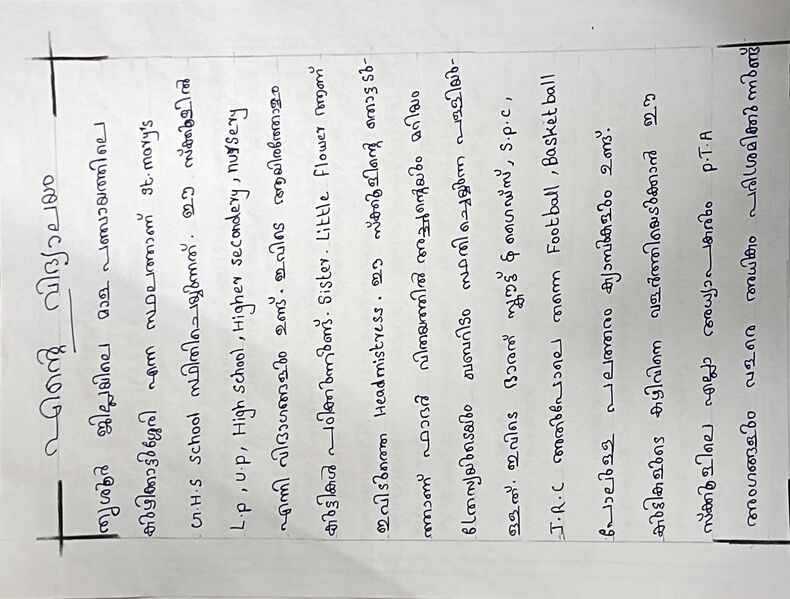 എന്റെ വിദ്യാലയം
തൃശൂർ ജില്ലയിലെ മാള പഞ്ചായത്തിലെ
കുഴിക്കാട്ടുശ്ശേരി എന്ന സ്ഥലത്താണ് St.mary's
G.H.S School സ്ഥിതിചെയ്യുന്നത്. ഈ സ്കൂളിൽ
L.P, U.P, High school, Higher secondery, nursery
എന്നീ വിഭാഗങ്ങളും ഉണ്ട്. ഇവിടെ ആയിരത്തോളം
കുട്ടികൾ പഠിക്കുന്നുണ്ട്. Sister. Little Flower ആണ്
ഇവിടുത്തെ Headmistress. ഈ സ്കൂളിന്റെ തൊട്ടടു-
ത്താണ് ഫാദർ വിതയത്തിൽ അച്ചന്റെയും മറിയം
ത്രേസ്യയുടെയും ഖബറിടം സ്ഥിതിചെയ്യുന്ന പള്ളിയു-
ള്ളത്. ഇവിടെ ഭാരത് സ്കൗട്ട് & ഗൈഡ്സ്, S.P.C,
J.R.C അതുപോലെ തന്നെ Football, Basketball
പോലുള്ള പലതരം ക്യാമ്പുകളും ഉണ്ട്.
കുട്ടികളുടെ കഴിവിനെ വളർത്തിയെടുക്കാൻ ഈ
സ്കൂളിലെ എല്ലാ അധ്യാപകരും P.T.A
അംഗങ്ങളും വളരെ അധികം പരിശ്രമിക്കുന്നുണ്ട്